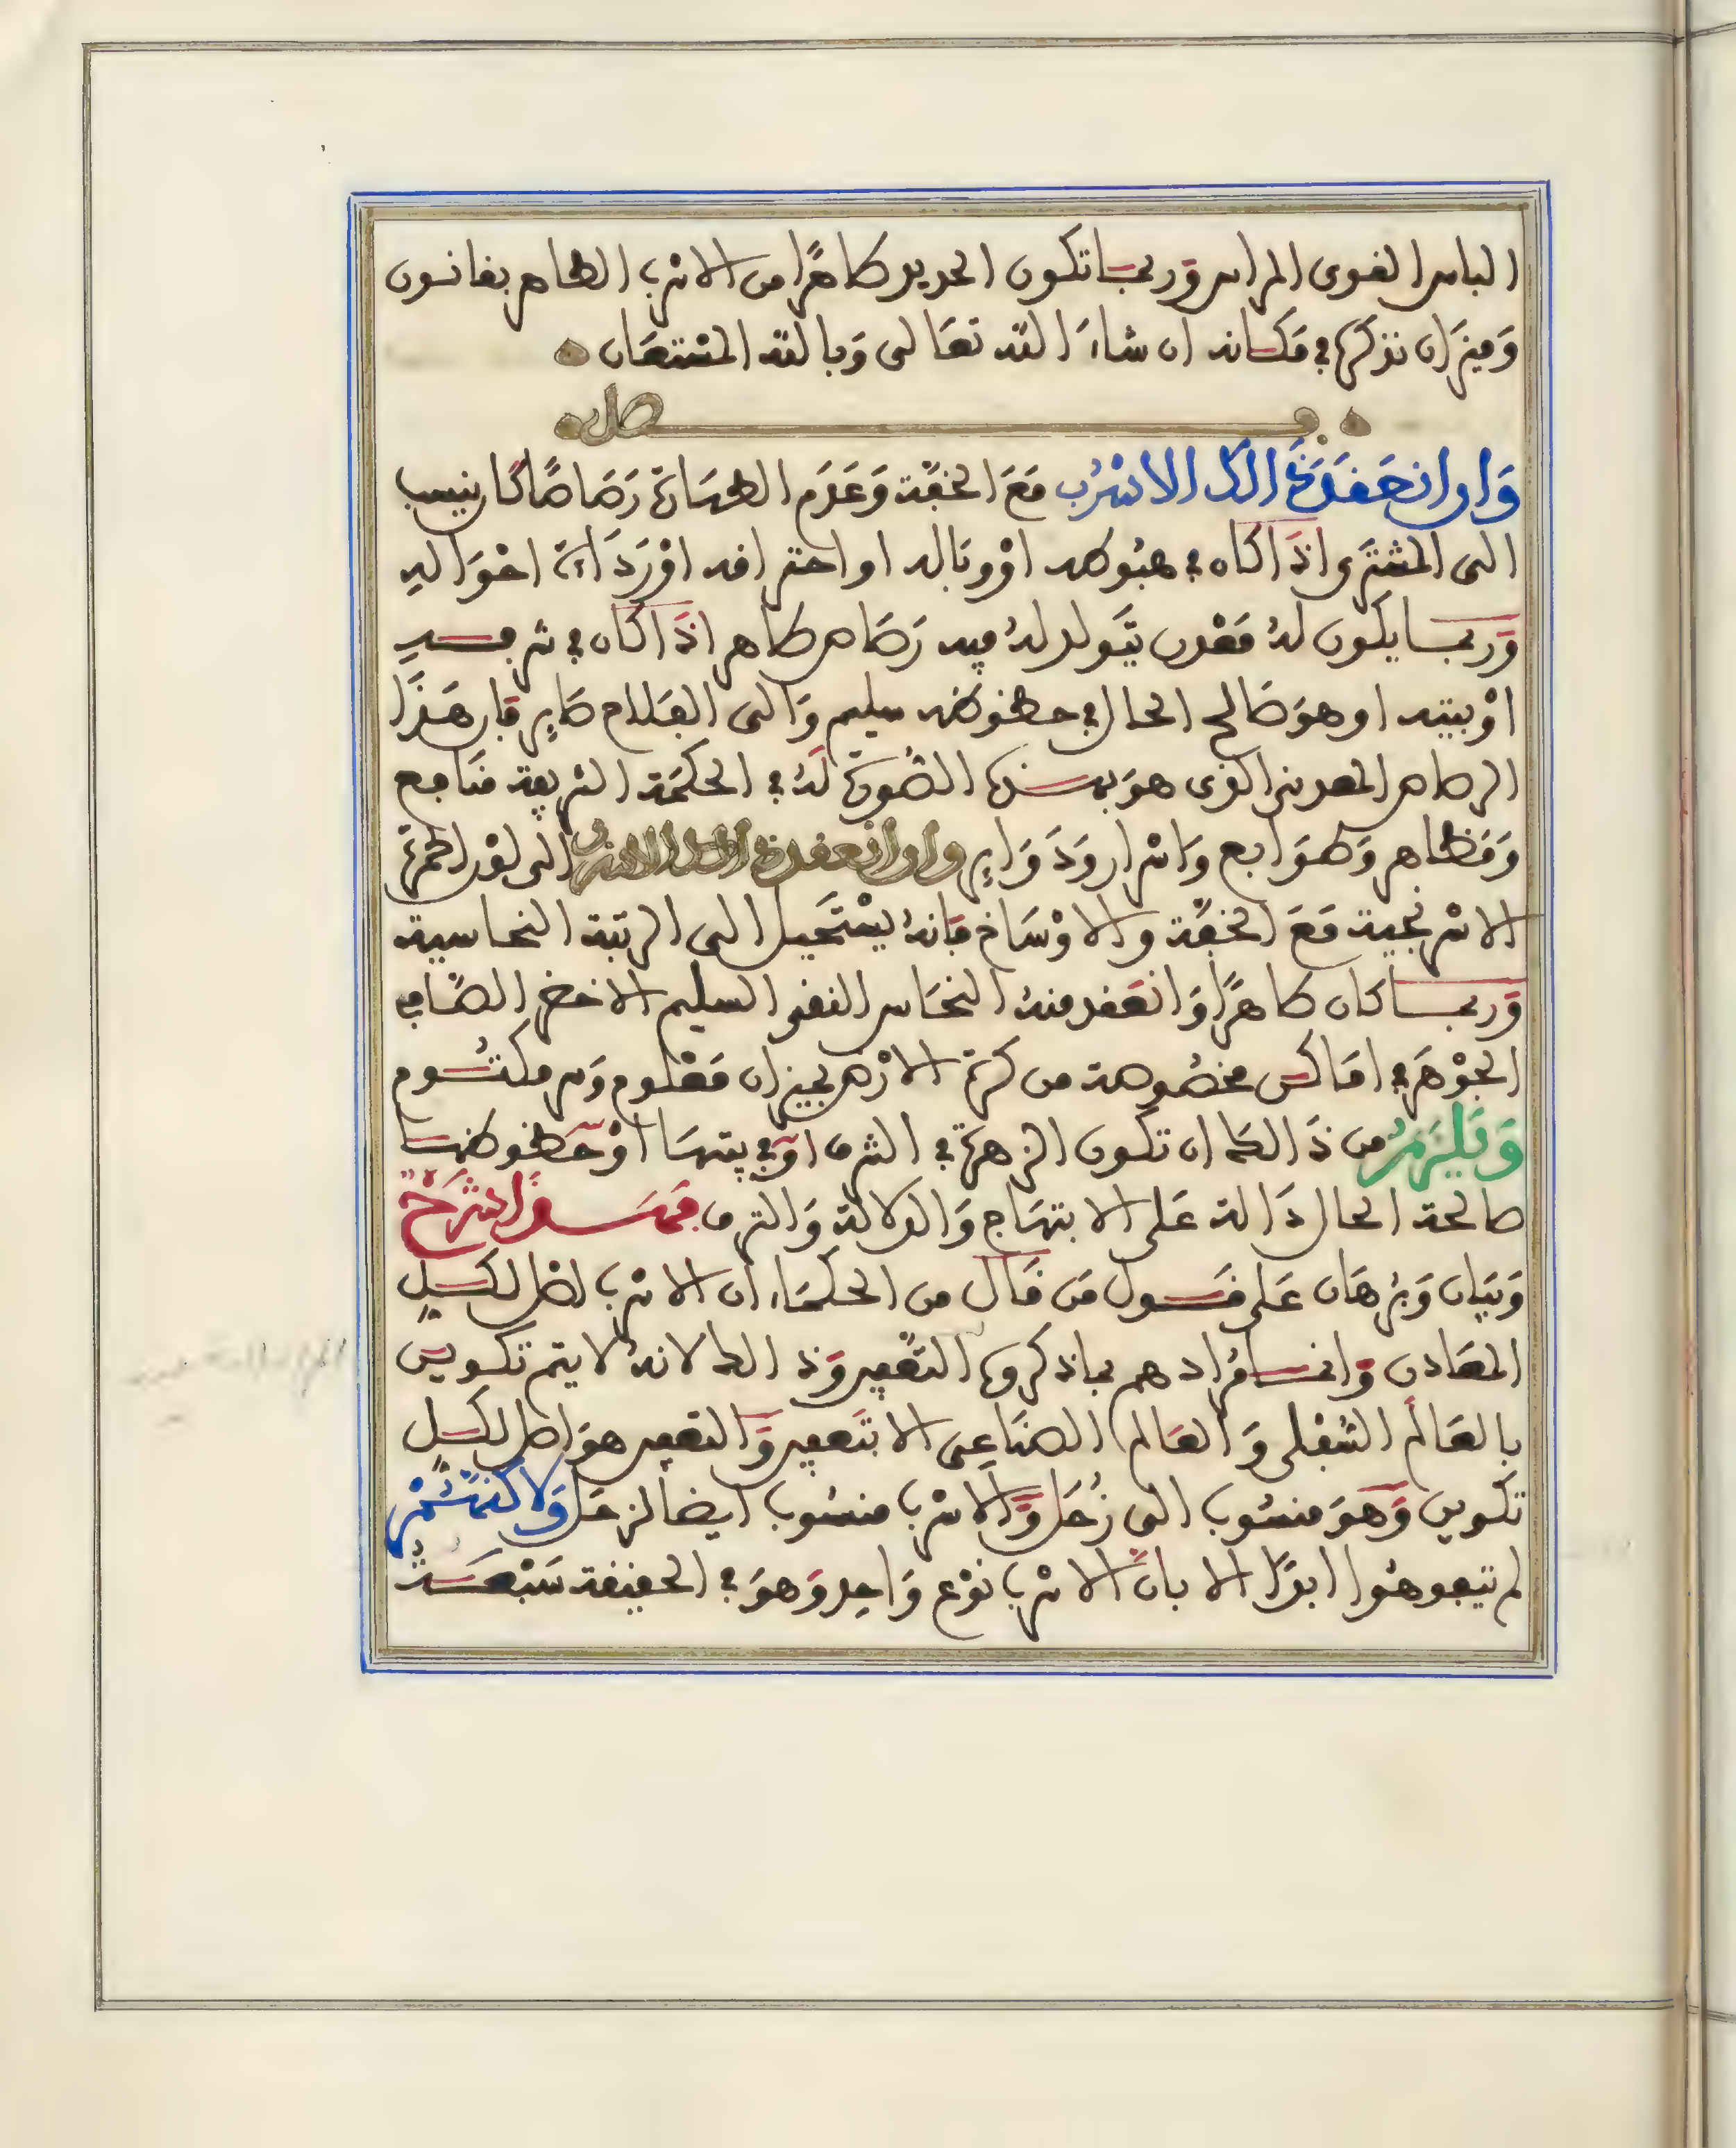 الباس القوى المراس وربما تكون الحديد طاهرا من الاسرب الطاهر بقانون
وميزان نذكرها في مكانه ان شاء الله تعالى وبالله المستعان
فصل
وان انعقد ذلك الاسرب مع الخفة وعدم الطهارة رصاصا كان ينسب
الى المشترى اذا كان في هبوطه او وباله او احتراقه او رداءة احواله
وربما يكون له معدن يتولد له فيه رصاص طاهر اذا كان في شرفه
او بيته او هو صالح الحال في حظوظه سليم والى الفلاح صاير فان هذا
الرصاص المعدني الذى هو بهذه الصورة له في الحكمة الشريفة منافع
ومظاهر وطوابع واسرار ودواير وان انعقد ذلك الاسرب الى لون الحمرة
الاسرنجية مع الخفة والاوساخ فانه يستحيل الى الرتبة النحاسية
وربما كان طاهرا وانعقد منه النحاس النقى السليم الاخضر الصافى
الجوهر في اماكن مخصوصة من كرة الارض بميزان معلوم وسر مكتوم
ويلزم من ذالك ان تكون الزهرة في الشرف او في بيتها او حظوظها
صالحة الحال دالة على الابتهاج والدلالة والترف فهذا شرح
وبيان وبرهان على قول من قال من الحكماء ان الاسرب اصل لكل
المعادن وانما مرادهم بما ذكروه التعفين وذالك لانه لا يتم تكوين
بالعالم السفلى والعالم الصناعى الا بتعفين والتعفين هو اصل لكل
تكوين وهو منسوب الى زحل والاسرب منسوب ايضا لزحل ولاكنهم
لم تيفوهوا ابدا الا بان الاسرب نوع واحد وهو في الحقيقة سبعة